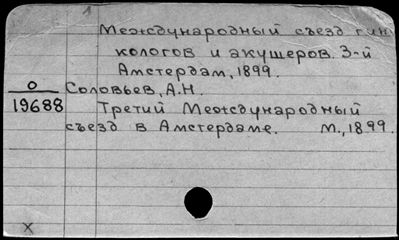 1
Международный съезд гин
кологов и акушеров. 3-й
Амстердам, 1899.
О
19688
Соловьев, А.Н.
Третий Международный
съезд в Амстердаме. М., 1899.
X